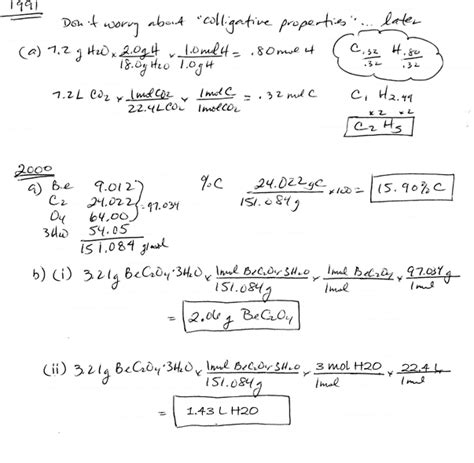 1991
Don't worry about "colligative properties"... later
(a) 7.2 g H2O × 2.0gH / 18.0g H2O × 1.0molH / 1.0gH = .80mole H
C.32 / .32 H.80 / .32
7.2L CO2 × 1molCO2 / 22.4LCO2 × 1molC / 1molCO2 = .32 mol C
C1 H2.49
×2 ×2
C2 H5
2000
a) Be 9.012
C2 24.022
O4 64.00
= 97.034
3H2O 54.05
151.084 g/mol
%C 24.022gC / 151.084g ×100 = 15.90% C
b) (i) 3.21g BeC2O4·3H2O × 1mol BeC2O4·3H2O / 151.084g × 1mol BeC2O4 / 1mol × 97.034g / 1mol
= 2.06 g BeC2O4
(ii) 3.21g BeC2O4·3H2O × 1mol BeC2O4·3H2O / 151.084g × 3 mol H2O / 1mol × 22.4L / 1mol
= 1.43 L H2O